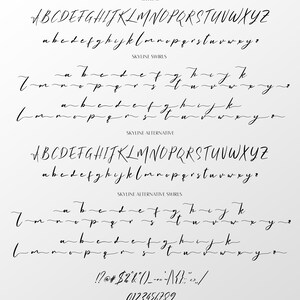 ABCDEFGHIJKLMNOPQRSTUVWXYZ
abcdefghijklmnopqrstuvwxyz
SKYLINE SWORS
abcdefghijk
lmnopqrstuvwxyz
abcdefghijk
lmnopqrstuvwxyz
SKYLINE ALTERNATIVE
ABCDEFGHIJKLMNOPQRSTUVWXYZ
abcdefghijklmnopqrstuvwxyz
SKYLINE ALTERNATIVE SWORS
abcdefghijk
lmnopqrstuvwxyz
abcdefghijk
lmnopqrstuvwxyz
0123456789